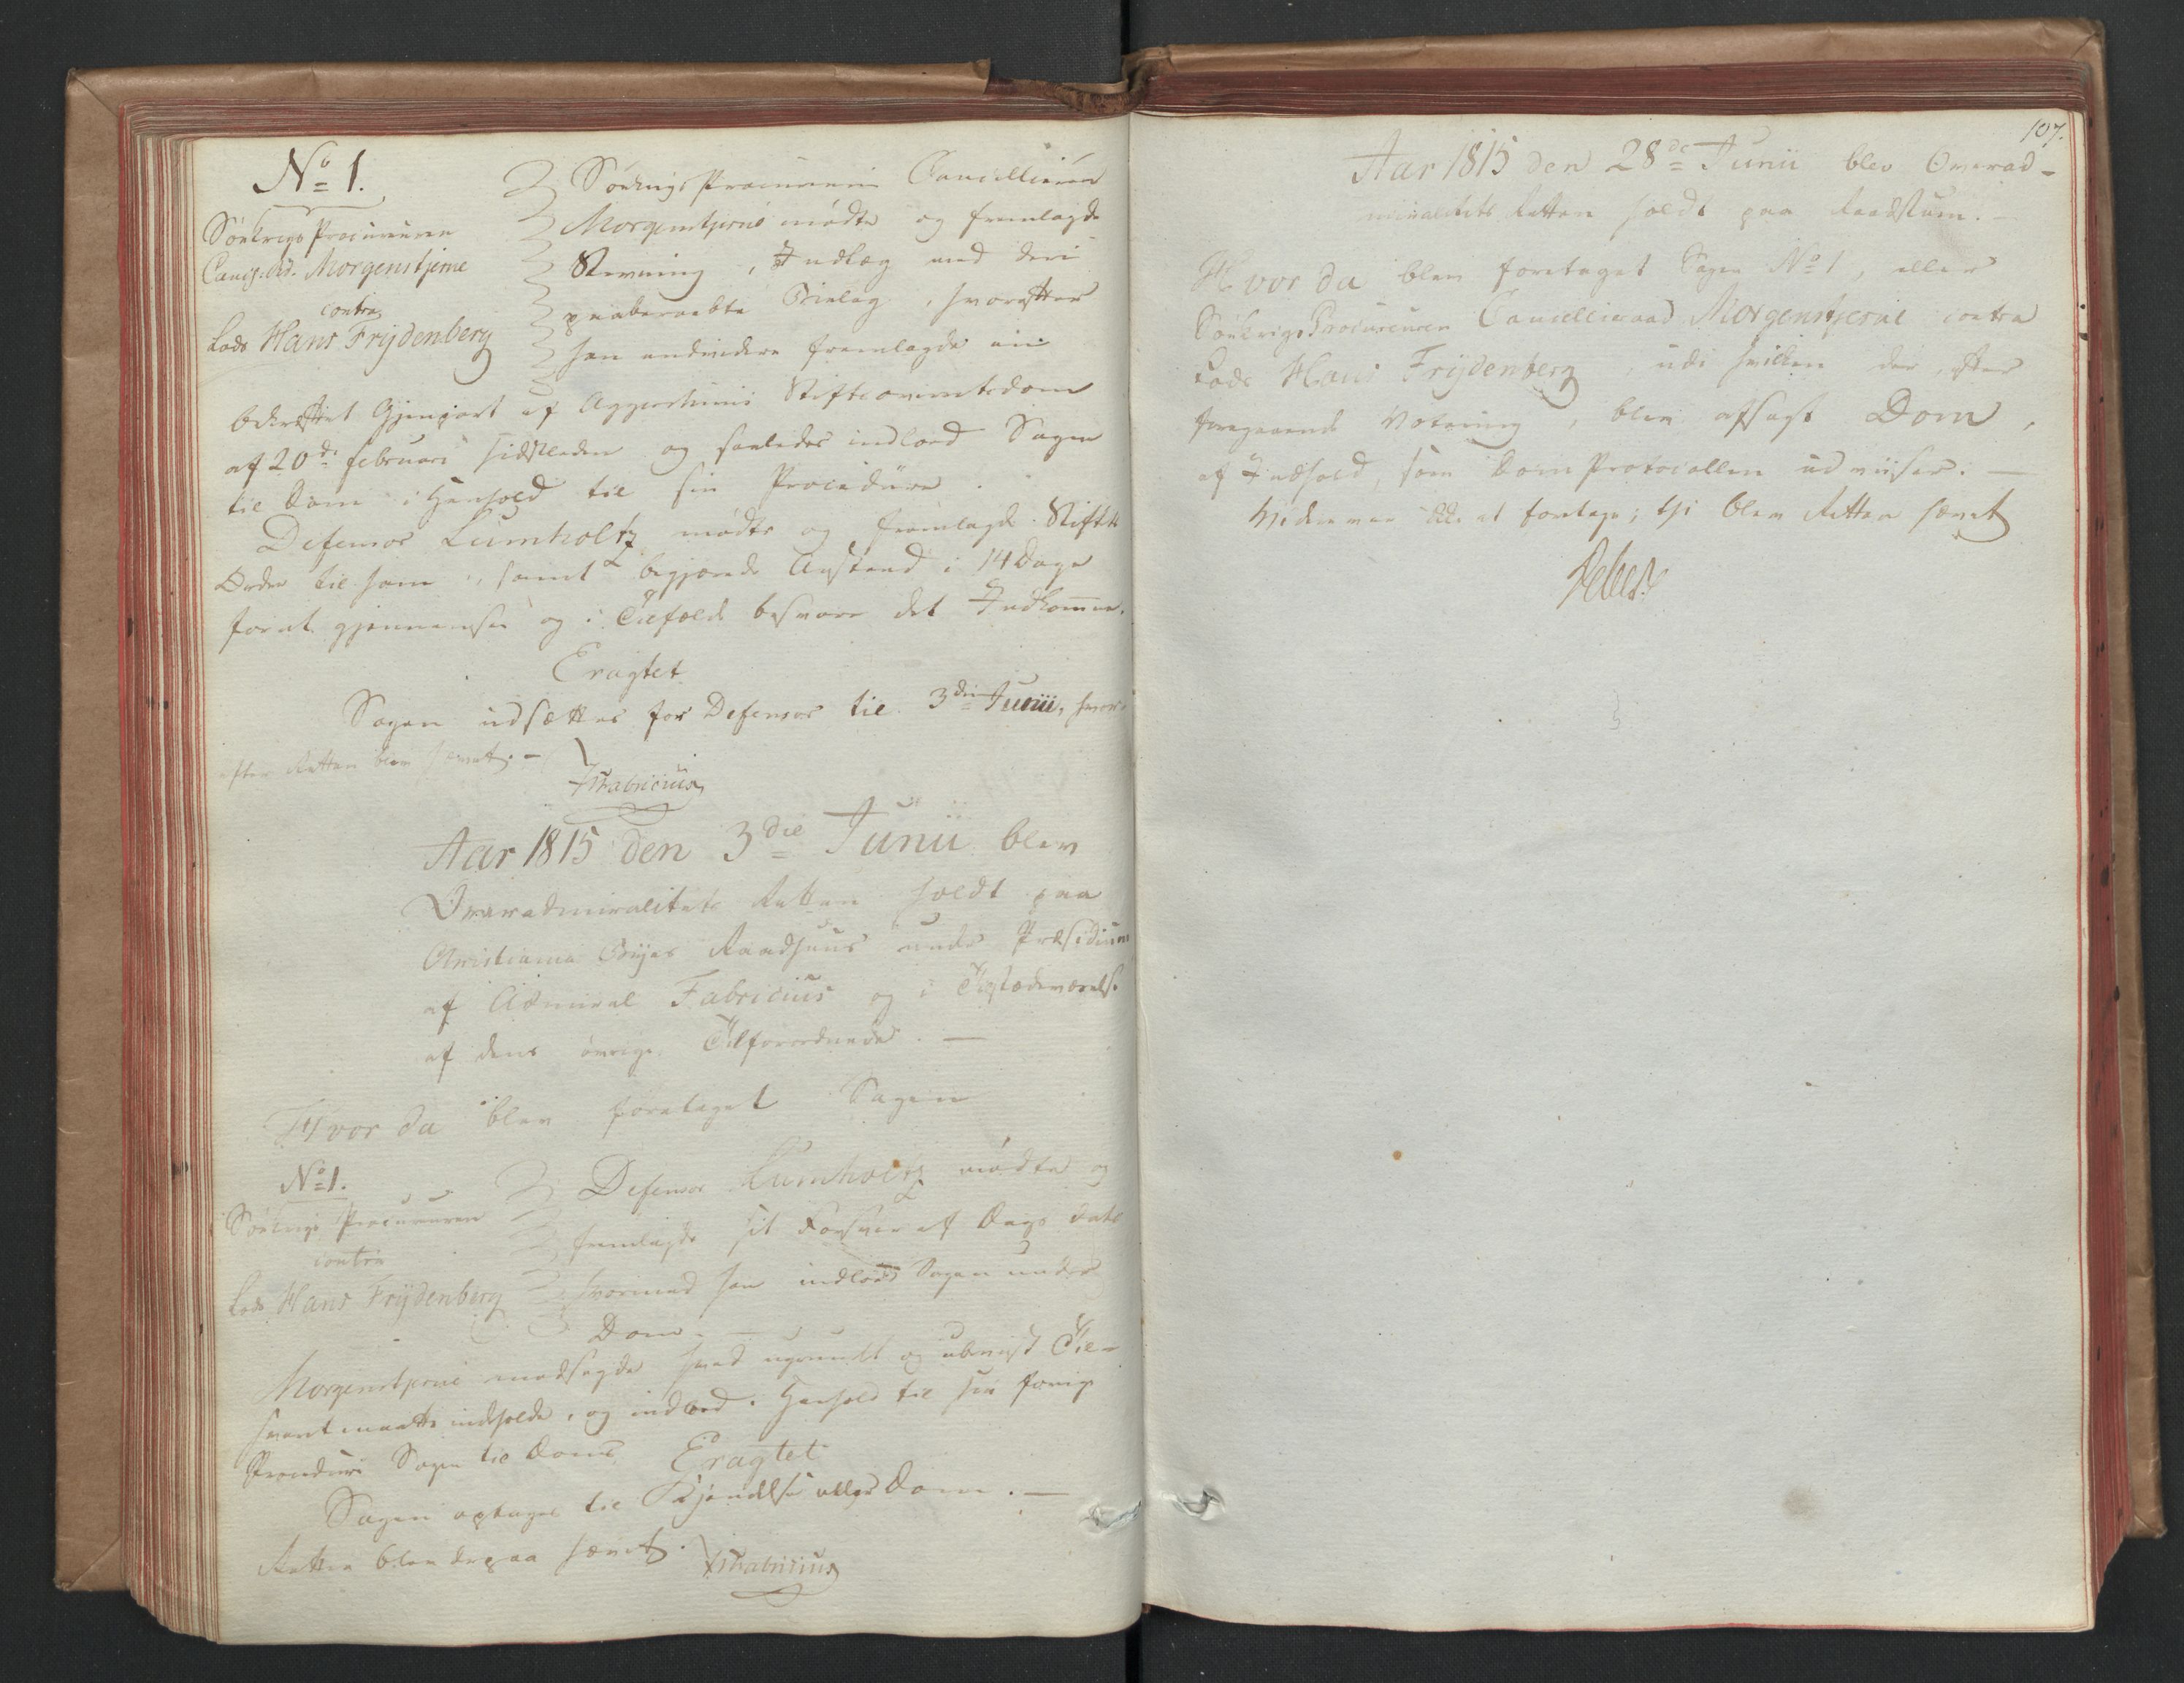 No 1.
Sökrigs Procureuren
Cancellird. Morgenstjerne
contra
Lods Hans Frydenberg
Sökrigs Procureuren Cancelliraad
Morgenstjerne mødte og fremlagde
Stevning, Indlæg med deri
paaberaabte Bielag, hvorefter
han endvidere fremlagde en
bekræftet Gjenpart af Aggershuus Stiftsoverretsdom
af 20de februari sidstleden og saaledes indlod Sagen
til Dom i Henhold til sin Procedüre.
Defensor Lumholtz mødte og fremlagde Stiftets
Ordre til ham, samt begjærede Anstand i 14 Dage
for at gjennemsee og i Tilfælde besvare det Indkomne.
Eragtet
Sagen udsættes for Defensor til 3die Junii, hvor-
efter Retten blev hævet. -
Fabricius
Aar 1815 den 3die Junii blev
Overadmiralitets Retten holdt paa
Christiania Byes Raadhuus under Præsidium
af Admiral Fabricius og i Tilstædeværelse
af dens øvrige Tilforordnede. —
Hvor da blev foretaget Sagen
No 1.
Sökrigs Procureuren
contra
Lods Hans Frydenberg
Defensor Lumholtz mødte og
fremlagde sit Forsvar af Dags Dato
hvormed han indlod Sagen under
Dom. —
Morgenstjerne modsagde hvad ugrundet og ubeviist Til-
svaret maatte indeholde, og indlod i Henhold til sin forrige
Procedure Sagen til Doms.
Eragtet
Sagen optages til Kjendelse eller Dom. —
Retten blev derpaa hævet.
Fabricius
107.
Aar 1815 den 28de Junii blev Overad-
miralitets Retten holdt paa Raadstuen. —
Hvor da blev foretaget Sagen No 1, eller
Sökrigs Procureuren Cancelliraad Morgenstjerne contra
Lods Hans Frydenberg, udi hvilken der, efter
foregaaende Votering, blev afsagt Dom,
af Indhold, som Dom Protocollen udviiser. —
Videre var ikke at foretage; thi blev Retten hævet